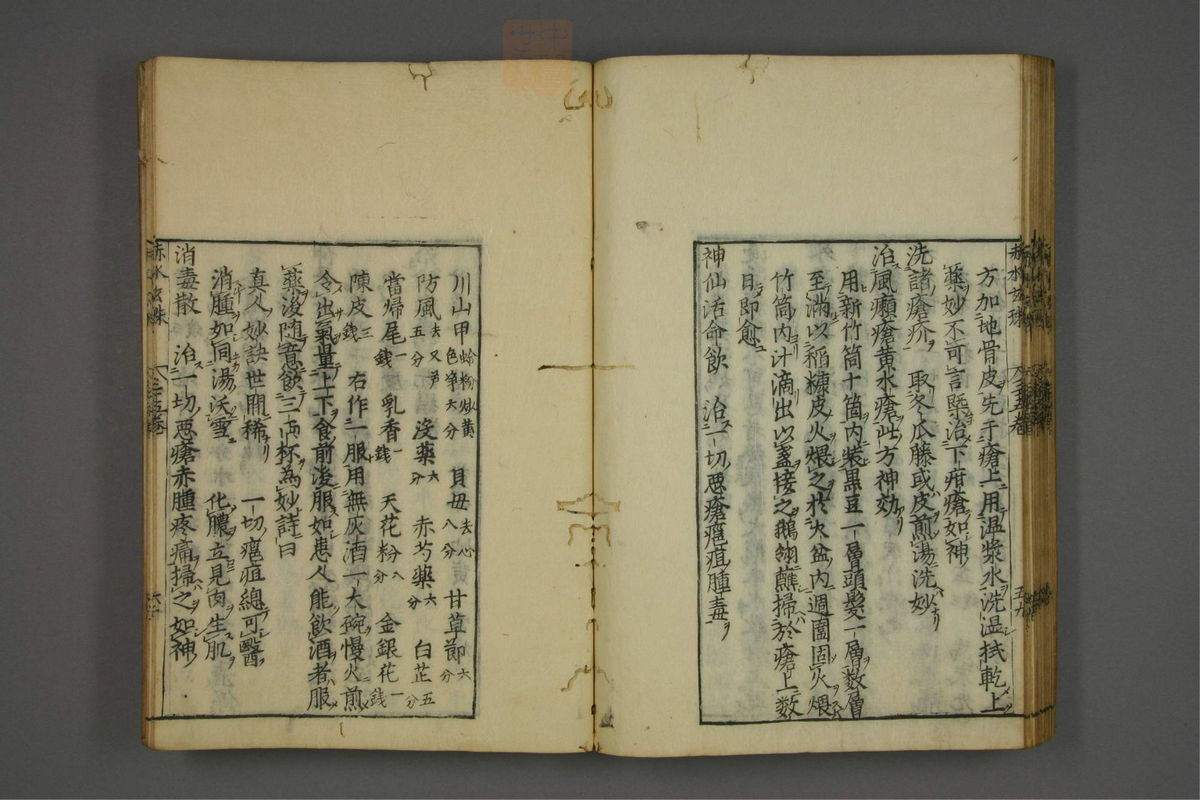 方加地骨皮先于瘡上用温漿水洗温拭乾上
藥妙不可言臨治下疳瘡如神
洗諸瘡疥 取冬瓜藤或皮煎湯洗妙
治風癩瘡黄水瘡此方神効
用新竹筒十箇内裝黒豆一層頭髪一層数層
至満以稲糠皮火煨之於火盆内週圍固火煨
竹筒内汁滴出以盞接之鵝翎蘸掃於瘡上数
日即愈
神仙活命飲 治一切悪瘡癰疽腫毒
川山甲 蛤粉炒黄色 六分 貝母 去心 八分 甘草節 六分
防風 五分 没藥 六分 赤芍藥 六分 白芷 五分
當帰尾 一銭 乳香 一銭 天花粉 八分 金銀花 一銭
陳皮 三銭 右作一服用無灰酒一大碗慢火煎
令出氣量上下食前後服如患人能飲酒者服
藥後随意飲三両杯為妙詩曰
真人妙訣世間稀 一切癰疽總可醫
消腫如同湯沃雪 化膿立見肉生肌
消毒散 治一切悪瘡赤腫疼痛掃之如神
赤水玄珠
五十九
赤水玄珠
六十